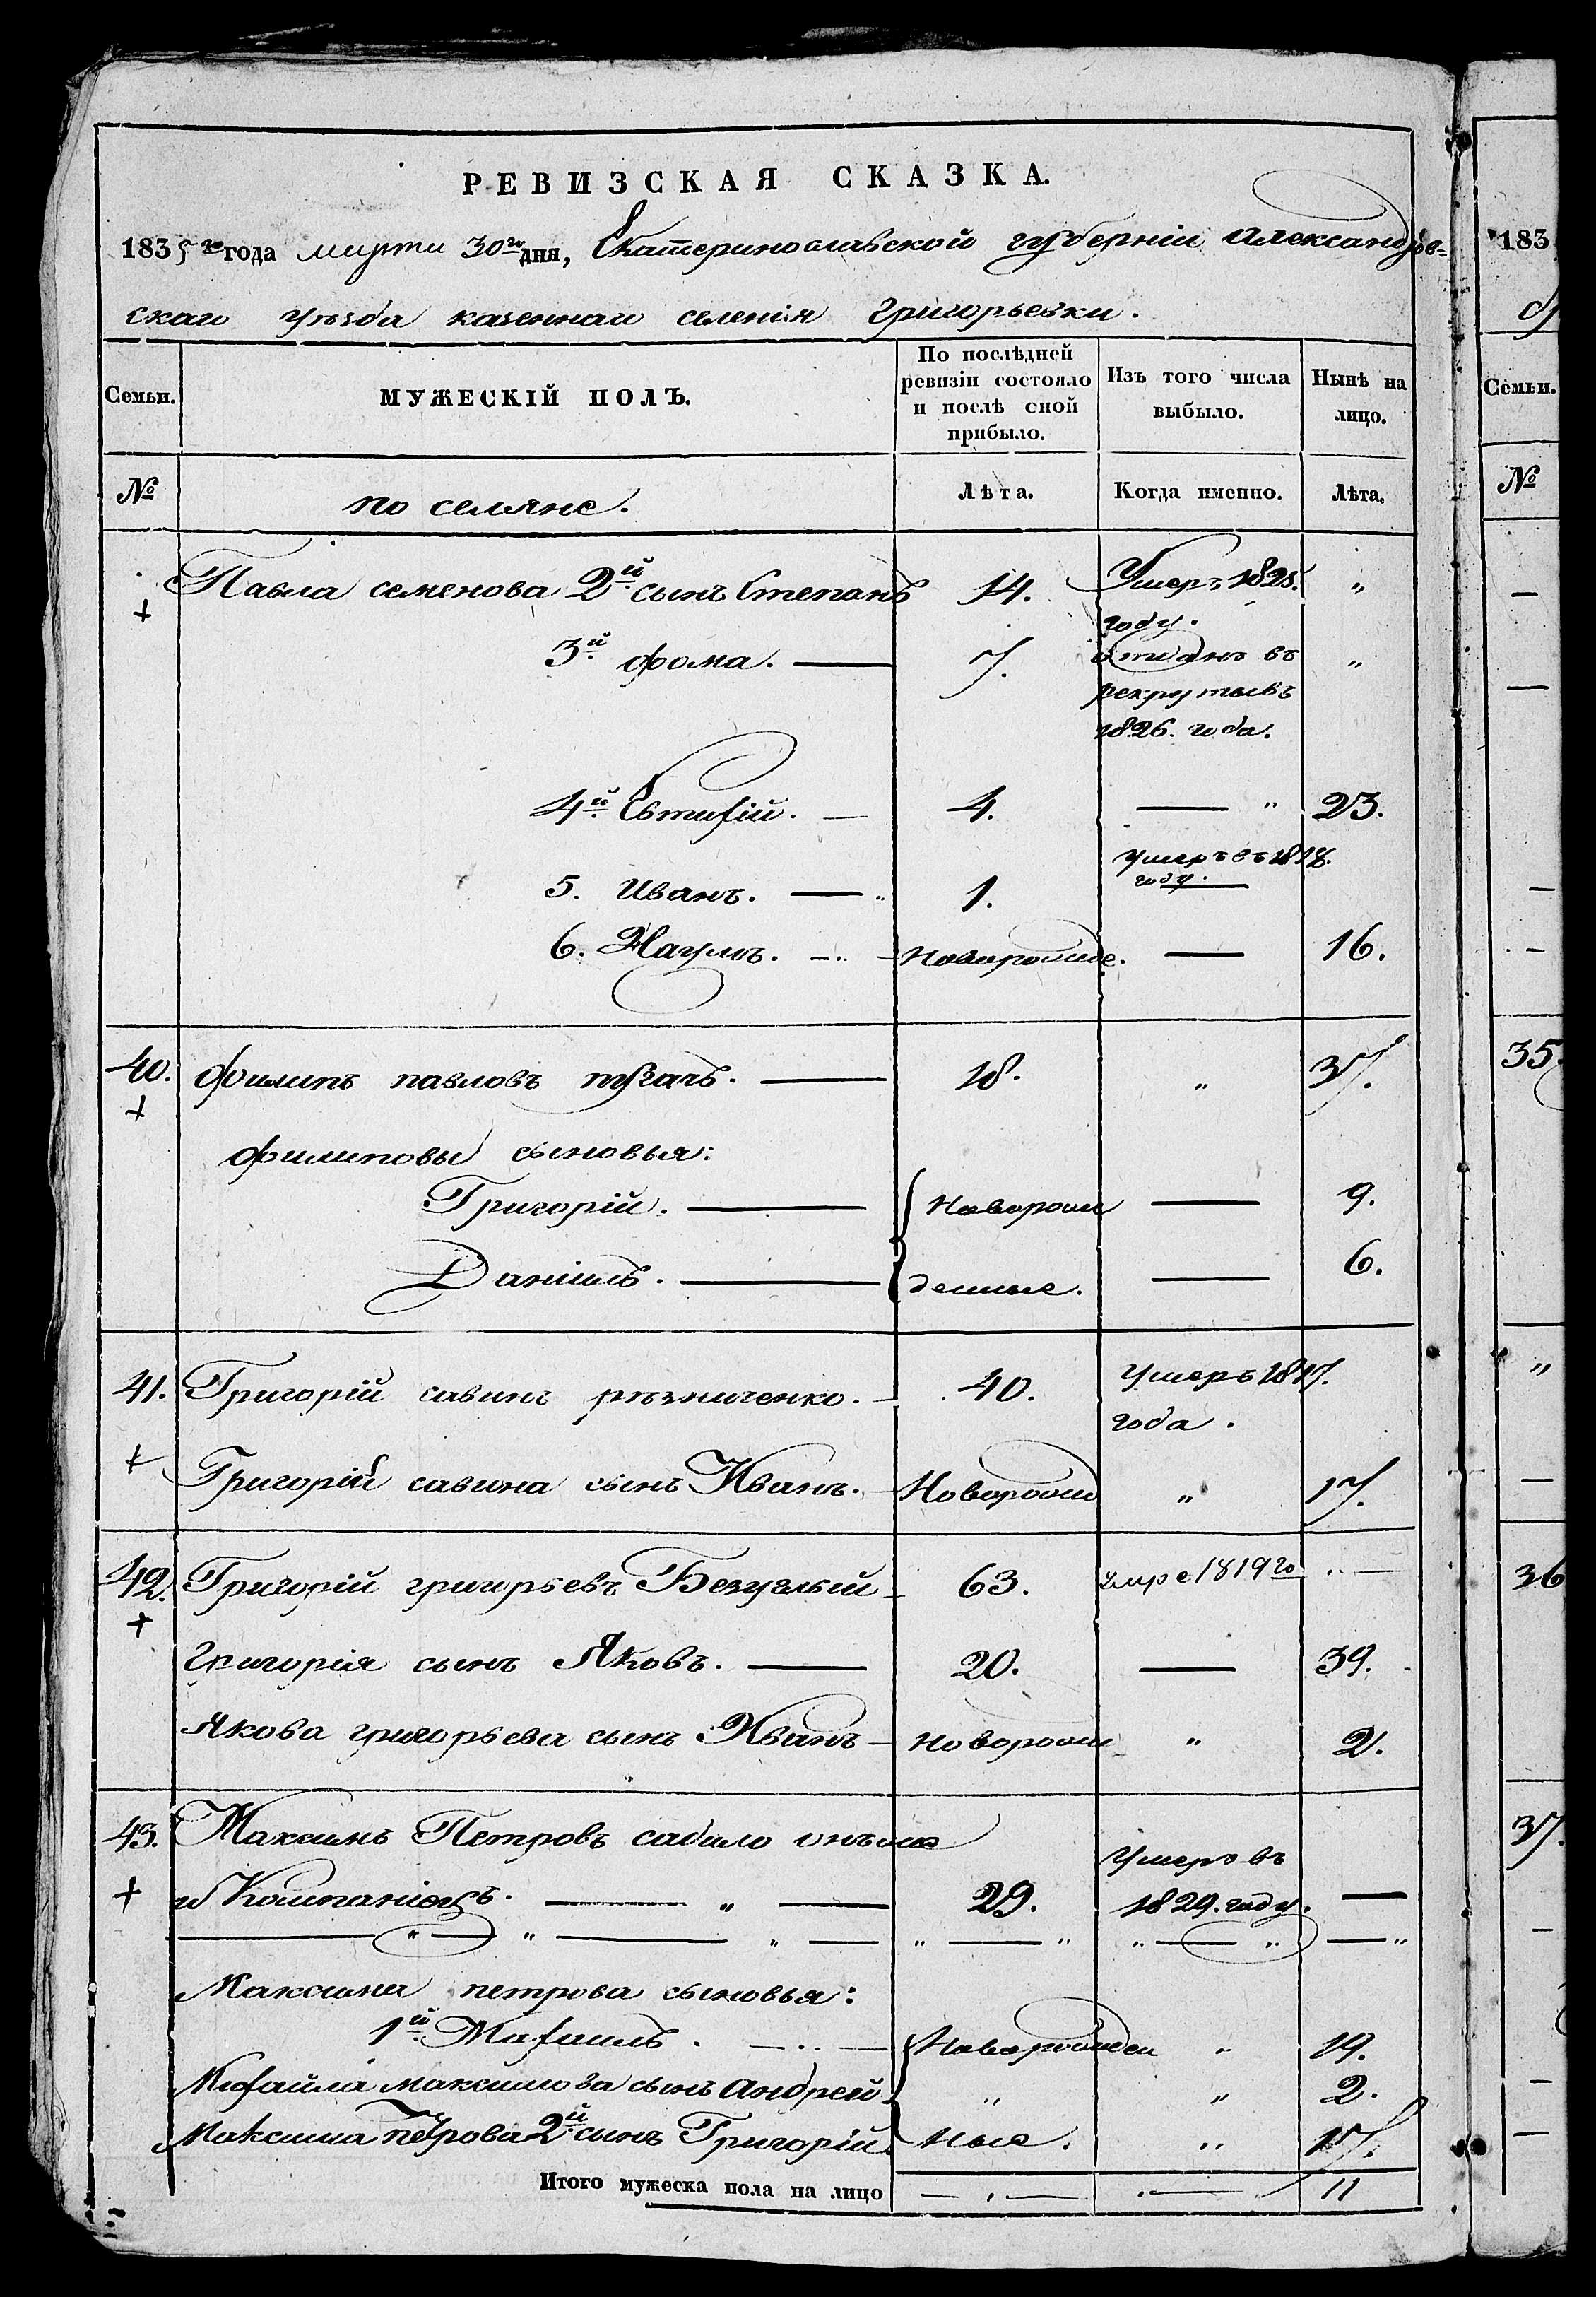 РЕВИЗСКАЯ СКАЗКА.
1835 го года марта 30 го дня, Екатеринославской губерніи Александров-
скаго уѣзда казеннаго селенія Григорьевки.
Семьи. МУЖЕСКІЙ ПОЛЪ. По послѣдней ревизіи состояло и послѣ сной прибыло. Изъ того числа выбыло. Нынѣ на лицо.
№ Лѣта. Когда именно. Лѣта.
Павла семенова 2й сынъ Степанъ 14. Умеръ 1825. году. „
3й фома. — 7. отданъ въ рекруты въ 1826. года. „
4й Евтифій. — 4. — „ 23.
5. Иванъ. — „ 1. умеръ въ 1818. году.
6. Наумъ. — Новорожде. — 16.
40. филипъ павловъ пугачъ. — 18. „ 37.
филиповы сыновья:
Григорій. — { Наворож — 9.
Даніилъ. — { денные. — 6.
41. Григорій савинъ рѣзниченко. — 40. умеръ 1817. года.
Григорій савина сынъ Иванъ. — Новорожд „ 17.
42. Григорій григорьевъ Безуглый — 63. умре 1819 го „ —
григорія сынъ Яковъ. — 20. — 39.
Якова григорьева сынъ Иванъ — новорожд „ 2.
43. Максимъ Петровъ онъже
и Компаніецъ. — „ — 29. Умеръ въ 1829. году. —
Максима петрова сыновья:
1й Михаилъ. — { Наворожден „ 19.
Михайла максимова сынъ андрей { „ „ 2.
Максима Петрова 2й сынъ Григорій. { ные. „ 17.
Итого мужеска пола на лицо — „ — „ — 11
183
Семьи.
№
35.
„
36
37.